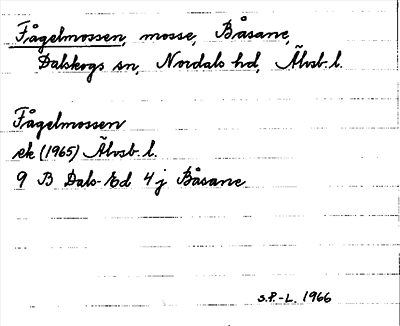 Fågelmossen, mosse, Båsane,
Dalskogs sn, Nordals hd, Älvsb. l.
Fågelmossen
ek (1965) Älvsb. l.
9 B Dals-Ed 4 j Båsane
S.P.-L. 1966